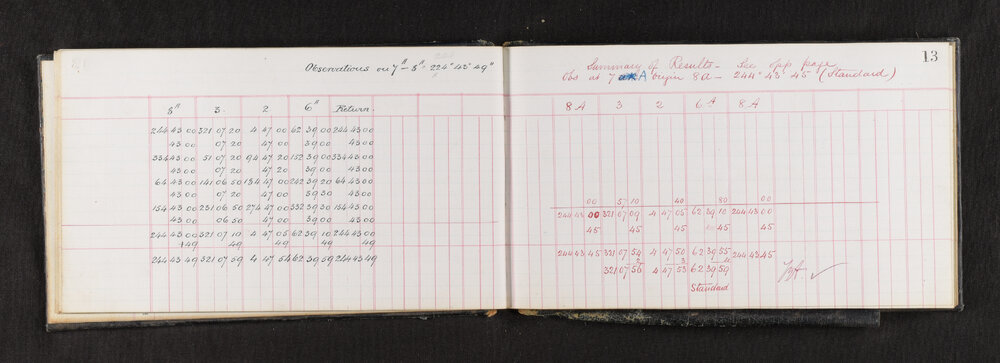 Observations on 7A - 8A 224° 43' 49"
8A 3. 2 6A Return.
244 43 00 321 07 20 4 47 00 62 39 00 244 43 00
43 00 07 20 47 00 39 00 43 00
334 43 00 51 07 20 94 47 20 152 39 00 334 43 00
43 00 07 20 47 20 39 00 43 00
64 43 00 141 06 50 184 47 00 242 39 20 64 43 00
43 00 07 20 47 00 39 30 43 00
154 43 00 231 06 50 274 47 00 332 39 30 154 43 00
43 00 06 50 47 00 39 00 43 00
244 43 00 321 07 10 4 47 05 62 39 10 244 43 00
+49 49 49 49 49
244 43 49 321 07 59 4 47 54 62 39 59 244 43 49
13
Summary of Results - See opp page
Obs at 7 A Origin 8A - 244° 43' 45 (Standard)
8 A 3 2 6 A 8 A
00 57 10 40 80 00
244 43 00 321 07 09 4 47 05 62 39 10 244 43 00
45 45 45 45 45
244 43 45 321 07 54 4 47 50 62 39 55 244 43 45
2 3 4
321 07 56 4 47 53 62 39 59
Standard